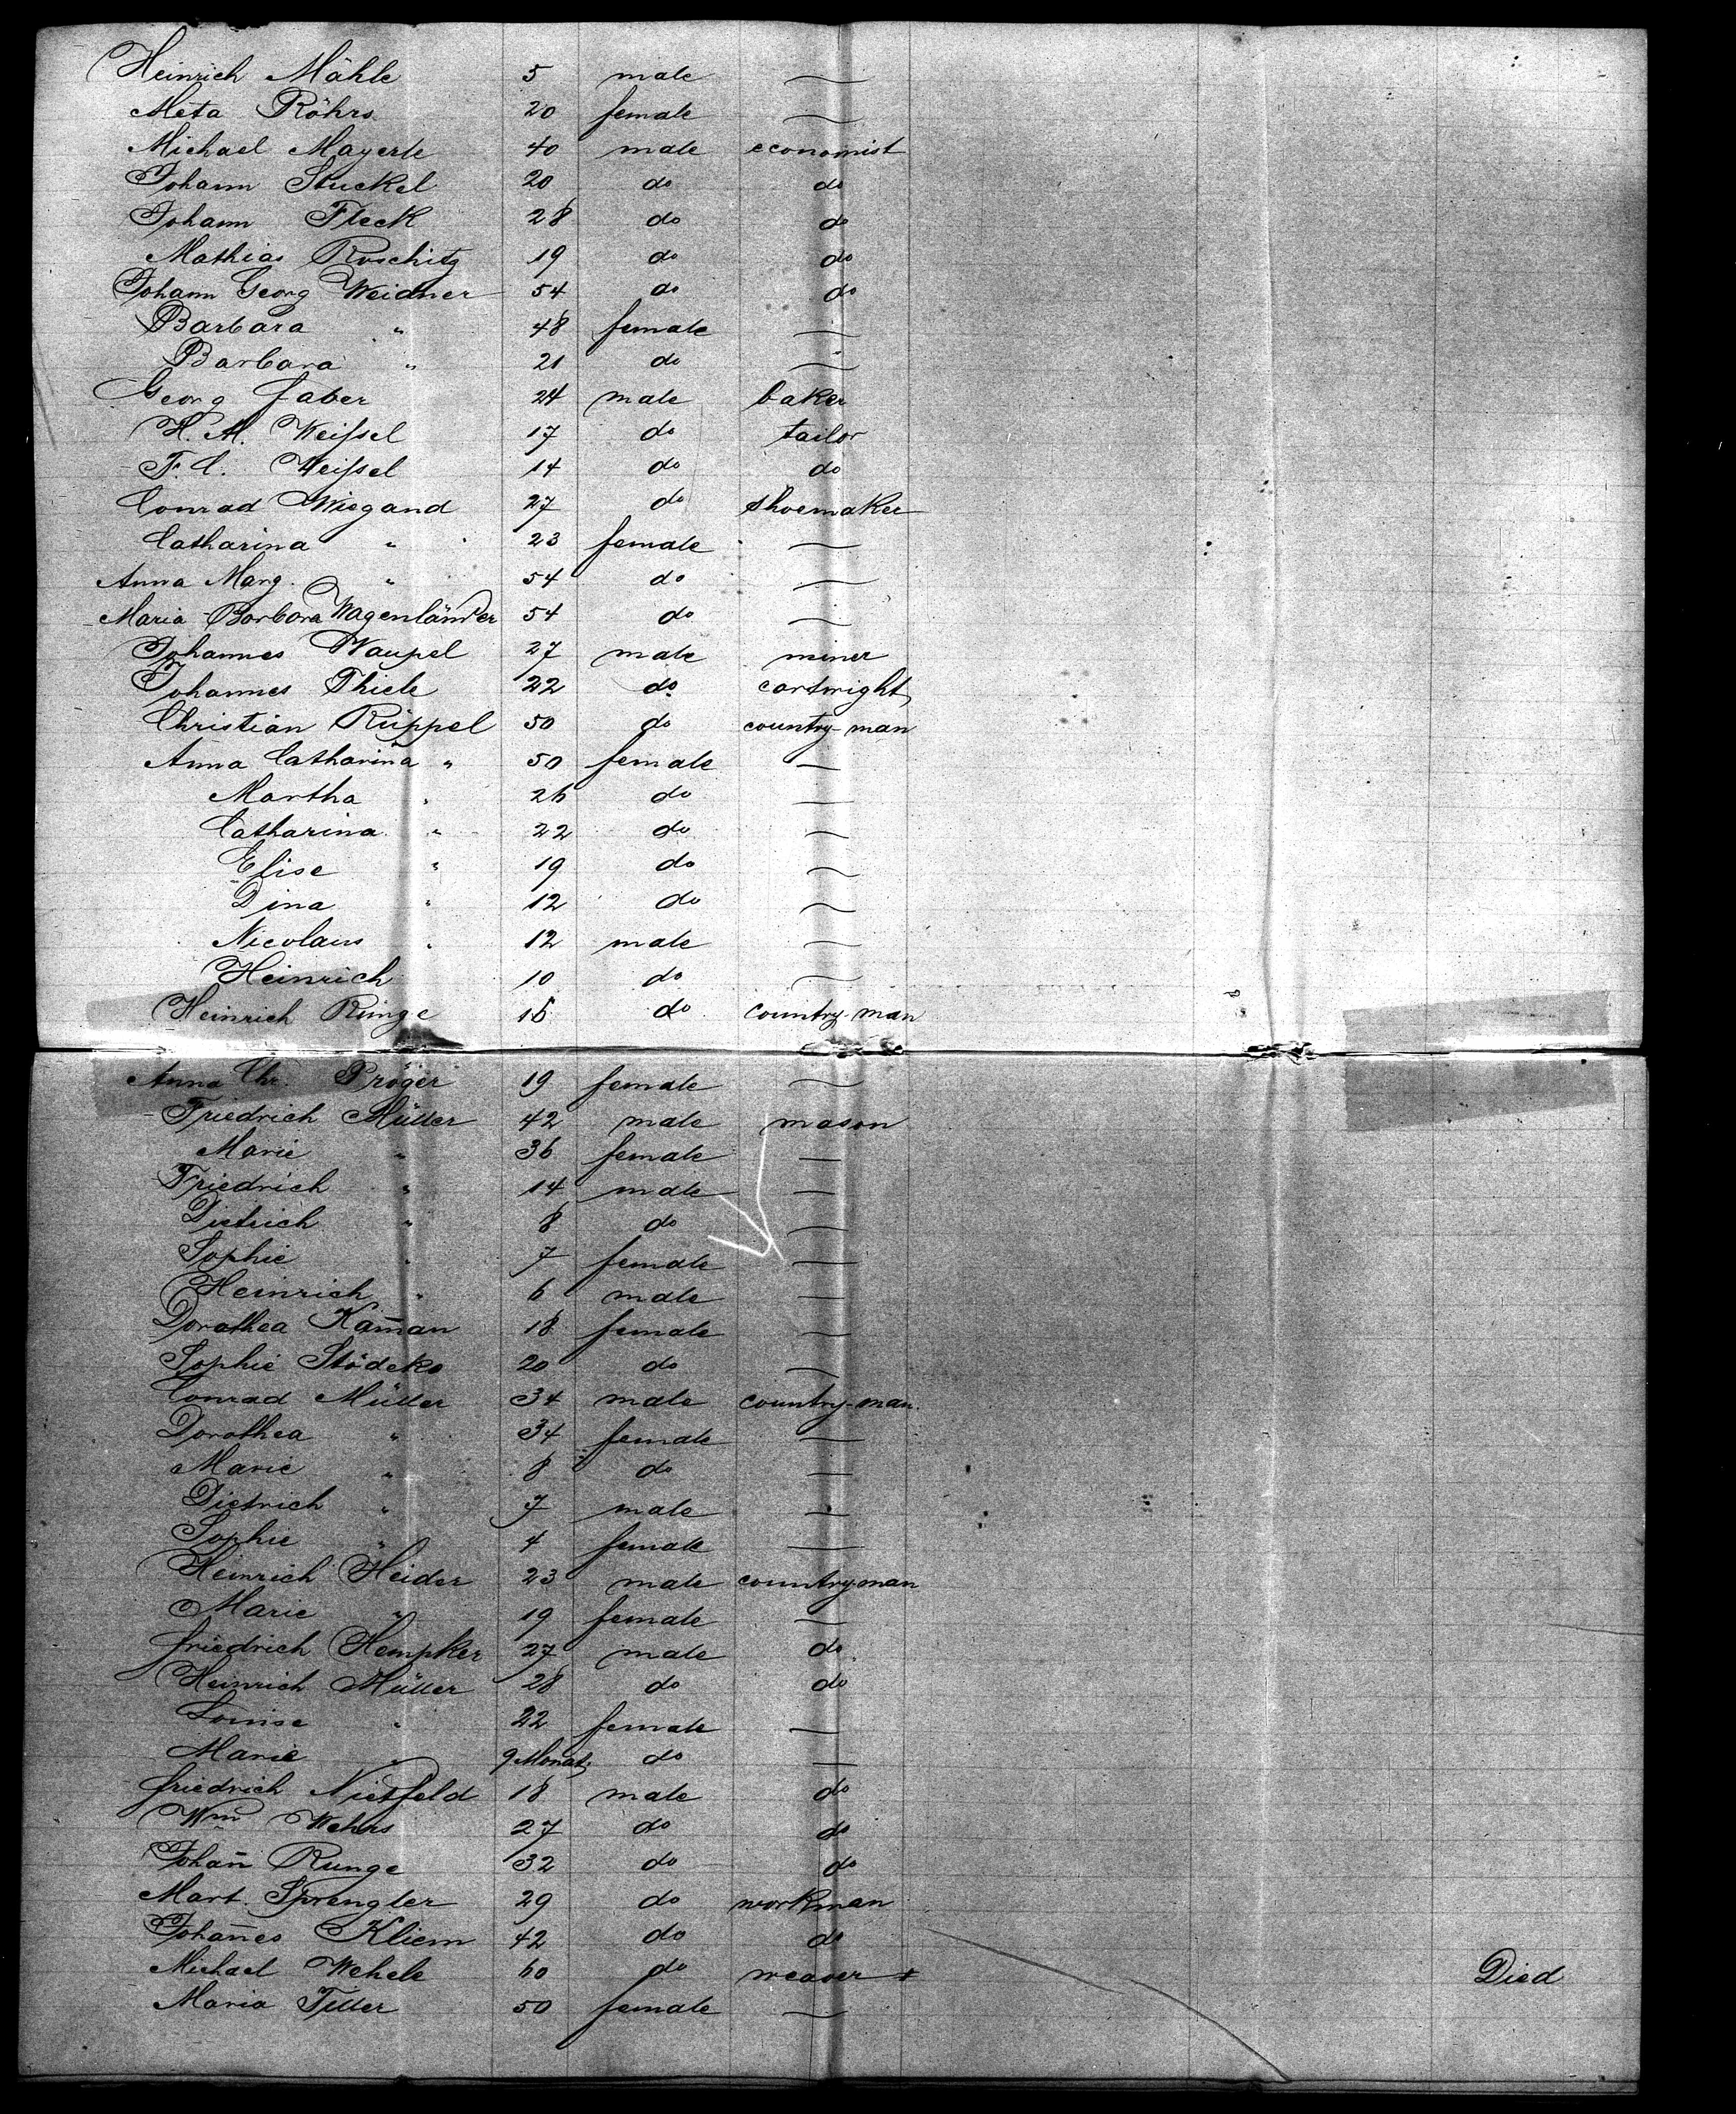 Heinrich Mähle 5 male —
Meta Röhrs 20 female —
Michael Mayerle 40 male economist
Johann Stuckel 20 do do
Johann Fleck 28 do do
Mathias Roschitz 19 do do
Johann Georg Weidner 54 do do
Barbara " 48 female —
Barbara " 21 do —
Georg Faber 24 male baker
H. M. Weißel 17 do tailor
F. C. Weißel 14 do do
Conrad Wiegand 27 do shoemaker
Catharina " 23 female —
Anna Marg. " 54 do —
Maria Barbara Wagenländer 54 do —
Johannes Waupel 27 male miner
Johannes Thiele 22 do cartwright
Christian Rüppel 50 do country-man
Anna Catharina " 50 female —
Martha " 26 do —
Catharina " 22 do —
Elise " 19 do —
Dina " 12 do —
Nicolaus " 12 male —
Heinrich 10 do —
Heinrich Runge 16 do country-man
Anna Chr. Pröger 19 female —
Friedrich Müller 42 male mason
Marie " 36 female —
Friedrich " 14 male —
Dietrich " 8 do —
Sophie " 7 female —
Heinrich " 6 male —
Dorothea Kam̄an 18 female —
Sophie Stödeke 20 do —
Conrad Müller 34 male country-man
Dorothea " 34 female —
Marie " 8 do —
Dietrich " 7 male —
Sophie " 4 female —
Heinrich Heider 23 male countryman
Marie " 19 female —
Friedrich Hempker 27 male do
Heinrich Müller 28 do do
Louise " 22 female —
Marie " 9 Monat do —
Friedrich Nietfeld 18 male do
Wm Wehrs 27 do do
Johan̄ Runge 32 do do
Mart. Sprengler 29 do workman
Johan̄es Kliem 42 do do
Michael Wehele 60 do weaver + Died
Maria Teller 50 female —